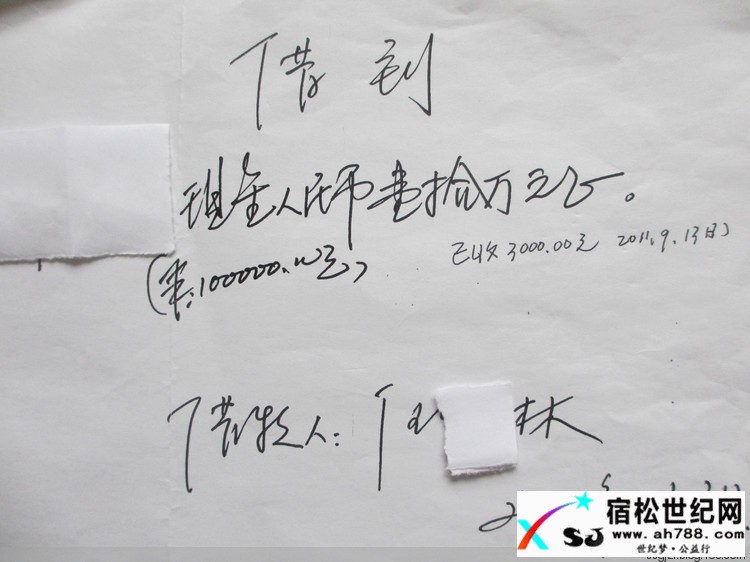 借到
现金人民币壹拾万元正。
(¥:100000.00元)
已收3000.00元 2011.9.13日
借款人:
林
宿松世纪网
XSJ
www.ah788.com
世纪梦·公益行